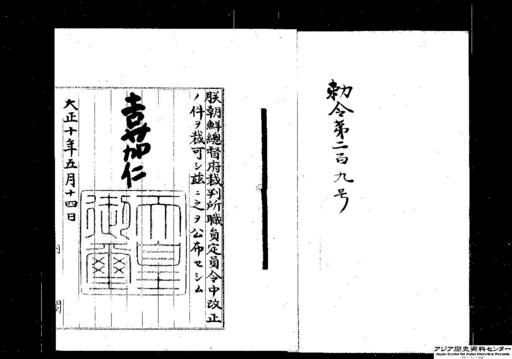 勅令第二百九号
朕朝鮮總督府裁判所職員定員令中改正
ノ件ヲ裁可シ茲ニ之ヲ公布セシム
嘉仁
天皇御璽
大正十年五月十四日
内閣
アジア歴史資料センター
Japan Center for Asian Historical Records